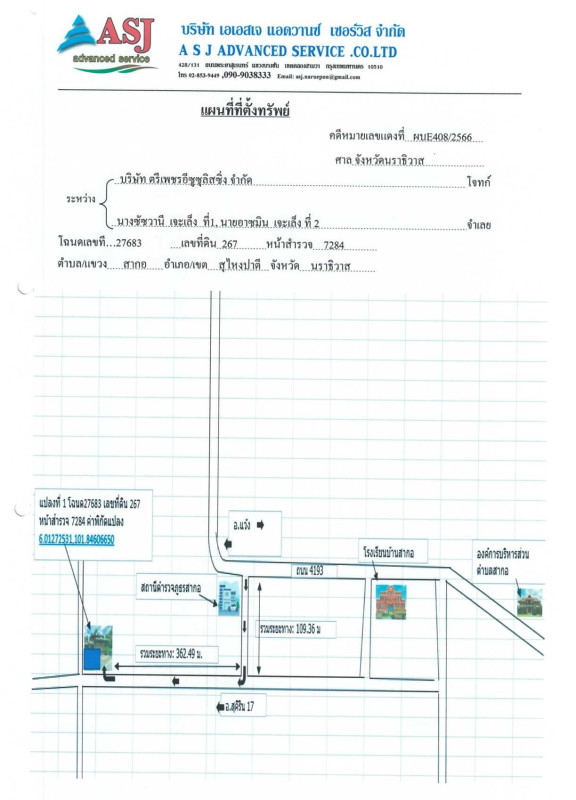 ASJ
advanced service
บริษัท เอเอสเจ แอดวานซ์ เซอร์วิส จำกัด
A S J ADVANCED SERVICE .CO.LTD
428/131 ถนนพระยาสุเรนทร์ แขวงบางชัน เขตคลองสามวา กรุงเทพมหานคร 10510
โทร 02-853-9449 ,090-9038333 Email: asj.naruepon@gmail.com
แผนที่ที่ตั้งทรัพย์
คดีหมายเลขแดงที่ ผบE408/2566
ศาล จังหวัดนราธิวาส
บริษัท ตรีเพชรอีซูซุลิสซิ่ง จำกัด โจทก์
ระหว่าง
นางซัซวานี เจะเล็ง ที่1, นายอาซมิน เจะเล็ง ที่ 2 จำเลย
โฉนดเลขที่...27683 เลขที่ดิน 267 หน้าสำรวจ 7284
ตำบล/แขวง สากอ อำเภอ/เขต สุไหงปาดี จังหวัด นราธิวาส
แปลงที่ 1 โฉนด27683 เลขที่ดิน 267
หน้าสำรวจ 7284 ค่าพิกัดแปลง
6.01272531,101.84606650
อ.แว้ง
ถนน 4193
โรงเรียนบ้านสากอ
องค์การบริหารส่วน
ตำบลสากอ
สถานีตำรวจภูธรสากอ
รวมระยะทาง: 109.36 ม
รวมระยะทาง: 362.49 ม.
อ.สุคิริน 17